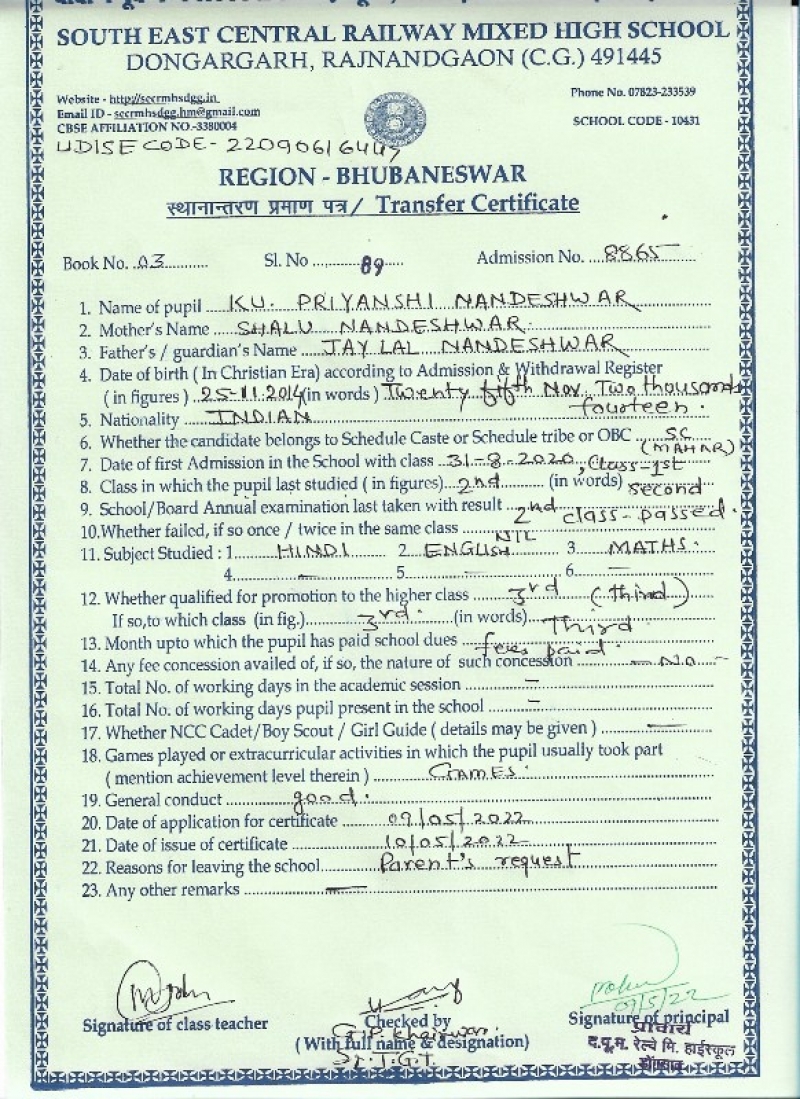 SOUTH EAST CENTRAL RAILWAY MIXED HIGH SCHOOL
DONGARGARH, RAJNANDGAON (C.G.) 491445
Website - http://sccrmhsdgg.in
Phone No. 07823-233539
Email ID - sccrmhsdgg.hm@gmail.com
CBSE AFFILIATION NO.-3380004
SCHOOL CODE - 10431
UDISE CODE - 22090616447
REGION - BHUBANESWAR
स्थानान्तरण प्रमाण पत्र / Transfer Certificate
Book No. 03 Sl. No 89 Admission No. 8865
1. Name of pupil KU. PRIYANSHI NANDESHWAR
2. Mother's Name SHALU NANDESHWAR
3. Father's / guardian's Name JAY LAL NANDESHWAR
4. Date of birth ( In Christian Era) according to Admission & Withdrawal Register
(in figures ) 25-11.2014 (in words ) Twenty fifth Nov. Two thousand
fourteen.
5. Nationality INDIAN
6. Whether the candidate belongs to Schedule Caste or Schedule tribe or OBC SC
(MAHAR)
7. Date of first Admission in the School with class 31-8-2020, Class-1st
8. Class in which the pupil last studied ( in figures) 2nd (in words) second
9. School/Board Annual examination last taken with result 2nd class-passed.
10.Whether failed, if so once / twice in the same class NIL
11. Subject Studied : 1 HINDI 2 ENGLISH 3 MATHS.
4. — 5. — 6. —
12. Whether qualified for promotion to the higher class 3rd (third)
If so,to which class (in fig.) 3rd. (in words) Third
13. Month upto which the pupil has paid school dues fees paid.
14. Any fee concession availed of, if so, the nature of such concession — No —
15. Total No. of working days in the academic session —
16. Total No. of working days pupil present in the school —
17. Whether NCC Cadet/Boy Scout / Girl Guide ( details may be given ) —
18. Games played or extracurricular activities in which the pupil usually took part
( mention achievement level therein ) GAMES.
19. General conduct good.
20. Date of application for certificate 09/05/2022
21. Date of issue of certificate 10/05/2022
22. Reasons for leaving the school Parent's request
23. Any other remarks —
09/5/22
Signature of class teacher
Checked by
Signature of principal
प्राचार्य
(With full name & designation)
द.पू.म. रेल्वे मि. हाईस्कूल
Sr. T.G.T.